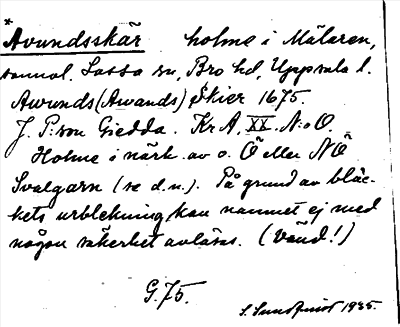 * Avundsskär holme i Mälaren,
sannol. Lassa sn, Bro hd, Uppsala l.
Awunds (Awands) Skier 1675.
J. P:son Giedda. Kr A, XX. N:o O.
Holme i närh. av o. Ö eller NÖ
Svalgarn (se d.n.). På grund av bläc-
kets urblekning kan namnet ej med
någon säkerhet avläsas. (Vänd!)
G. 75.
S. Sundquist 1935.